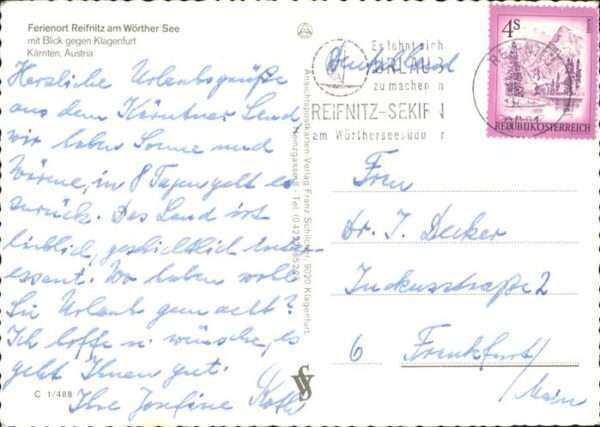 Ferienort Reifnitz am Wörther See
mit Blick gegen Klagenfurt
Kärnten, Austria
Herzliche Urlaubsgrüße
aus dem Kärntner Land
wir haben Sonne und
Wärme, in 8 Tagen geht es
zurück. Das Land ist
lieblich, geschichtlich inter-
essant. Wo haben wohl
Sie Urlaub gemacht?
Ich hoffe u. wünsche, es
geht Ihnen gut.
Ihre Josefine
C 1/488
Ansichtspostkarten Verlag Franz Schilcher, 9020 Klagenfurt
Es lohnt sich
URLAUB
zu machen in
REIFNITZ-SEKIRN
am Wörthersee
Deutschland
4S
REPUBLIK ÖSTERREICH
Frau
Dr. I. Decker
2
6 Frankfurt/
Main